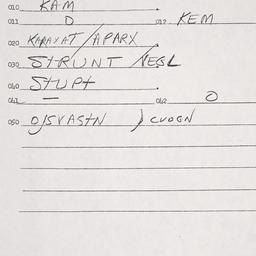 010 KAM
011 D 012 KEM
020 KARAXAT / APARX
030 STRUNT / VESL
040 STUPT
041 — 042 O
050 O/SVASTN ) CVOGN